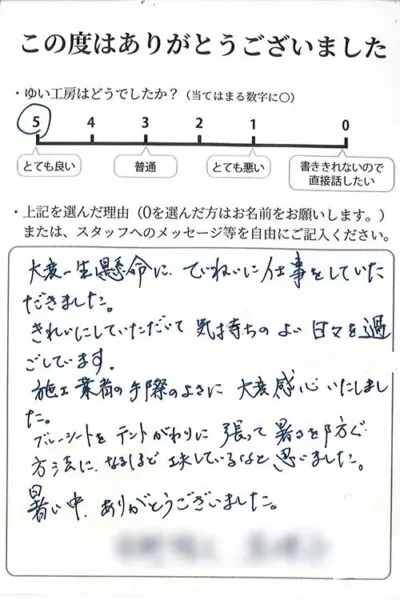 この度はありがとうございました
・ゆい工房はどうでしたか？（当てはまる数字に○）
5 4 3 2 1 0
とても良い 普通 とても悪い 書ききれないので
直接話したい
・上記を選んだ理由（0を選んだ方はお名前をお願いします。）
または、スタッフへのメッセージ等を自由にご記入ください。
大変一生懸命に、ていねいに仕事をしていた
だきました。
きれいにしていただいて気持ちのよい日々を過
ごしています。
施工業者の手際のよさに大変感心いたしまし
た。
ブルーシートをテントがわりに張って暑さを防ぐ
方法に、なるほど工夫しているなと思いました。
暑い中、ありがとうございました。